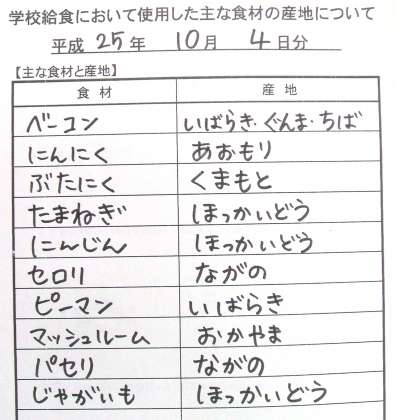 学校給食において使用した主な食材の産地について
平成 25 年 10 月 4 日分
【主な食材と産地】
食材 産地
ベーコン いばらき・ぐんま・ちば
にんにく あおもり
ぶたにく くまもと
たまねぎ ほっかいどう
にんじん ほっかいどう
セロリ ながの
ピーマン いばらき
マッシュルーム おかやま
パセリ ながの
じゃがいも ほっかいどう